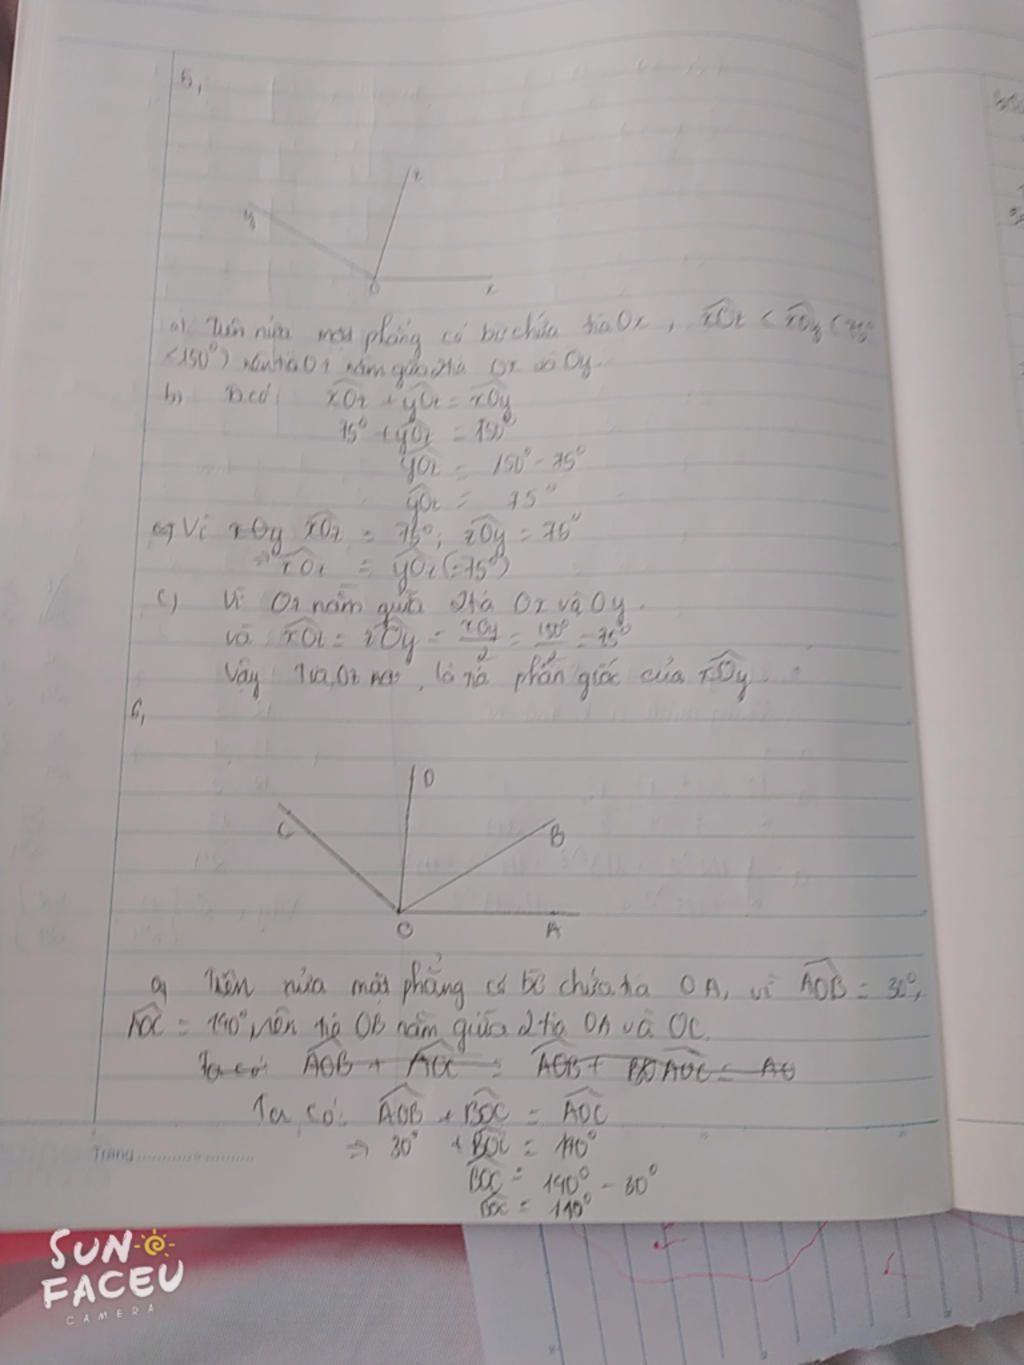 5,
z
y
O
x
a) Trên nửa mặt phẳng có bờ chứa tia Ox, xOz < xOy (75°
<150°) nên tia Oz nằm giữa 2 tia Ox và Oy.
b) Ta có: xOz + yOz = xOy
75° + yOz = 150°
yOz = 150° - 75°
yOz = 75°
Vì xOy xOz = 75°; zOy = 75°
⇒ xOz = yOz (=75°)
c) Vì Oz nằm giữa 2 tia Ox và Oy.
và xOz = zOy = xOy/2 = 150°/2 = 75°
Vậy tia Oz là tia phân giác của xOy.
6,
D
C
B
O
A
a, Trên nửa mặt phẳng có bờ chứa tia OA, vì AOB = 30°,
AOC = 140°, nên tia OB nằm giữa 2 tia OA và OC.
Ta có: AOB + AOC = AOB + AOC = AO
Ta có: AOB + BOC = AOC
⇒ 30° + BOC = 140°
BOC = 140° - 30°
BOC = 110°
Trang
SUN
FACEU
CAMERA